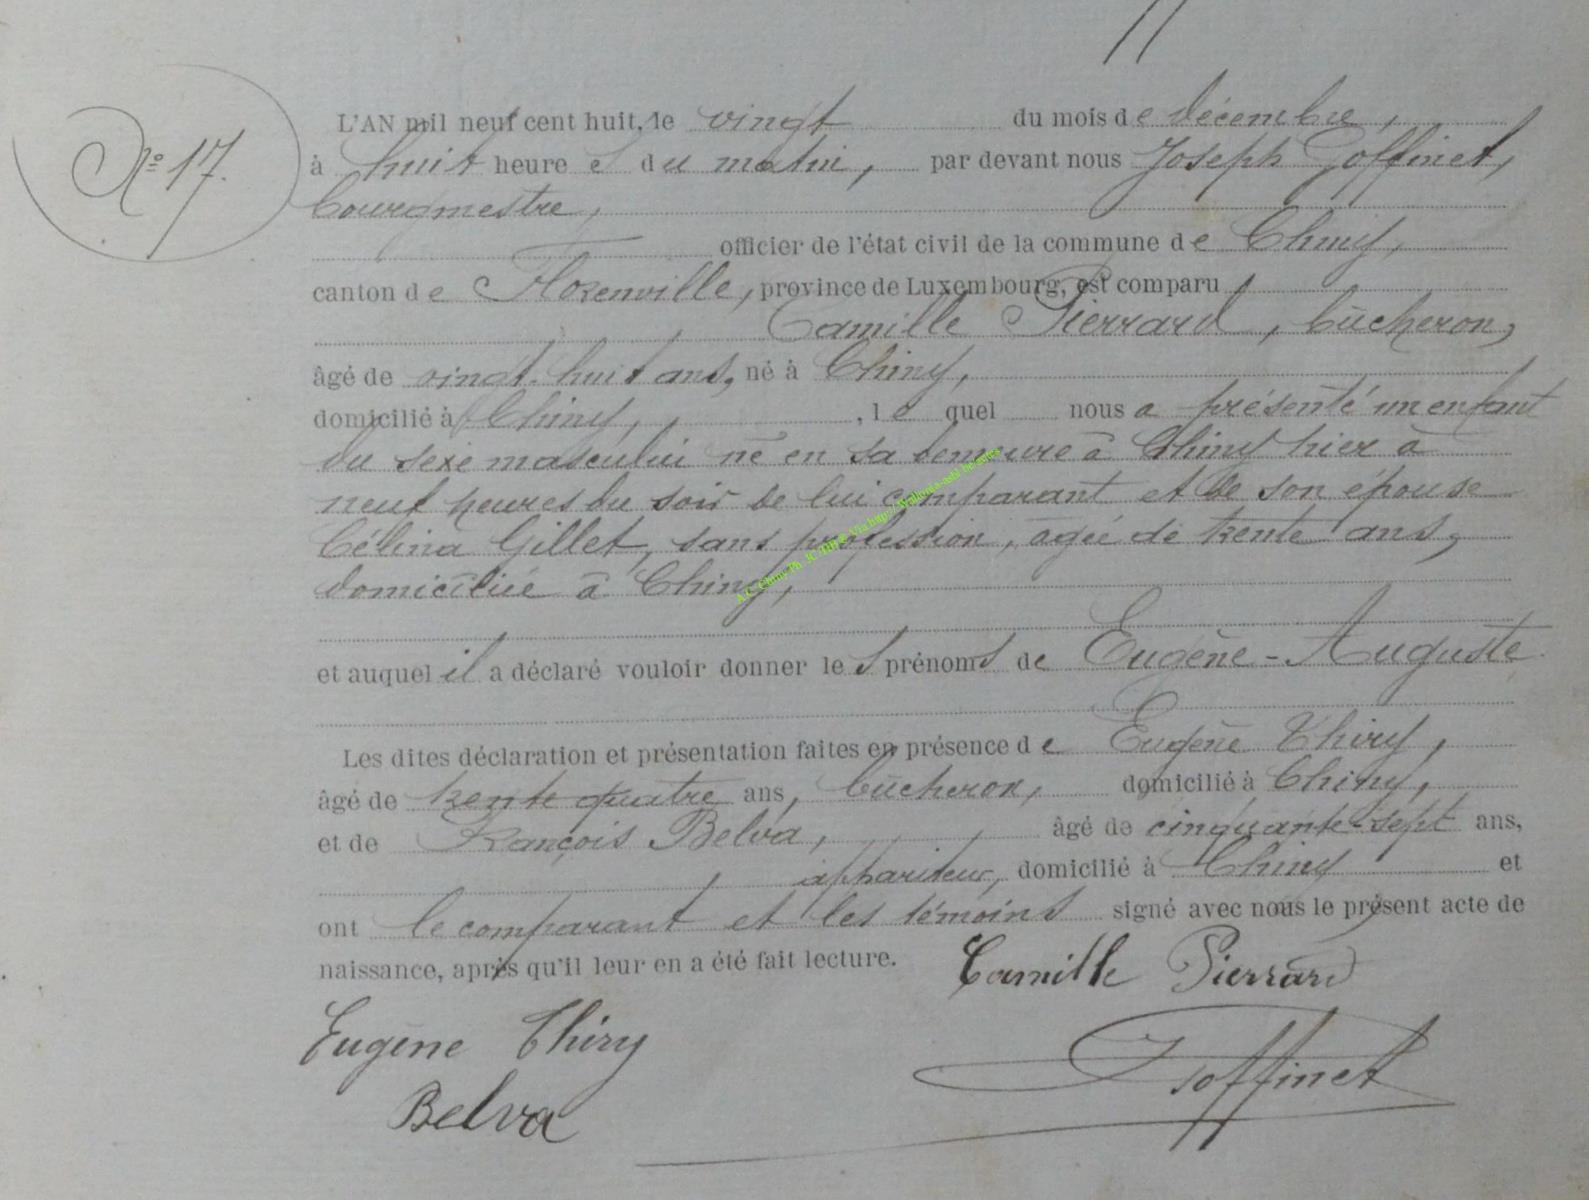 Nº 17.
L'AN mil neuf cent huit, le vingt du mois de décembre,
à huit heures du matin, par devant nous Joseph Goffinet,
bourgmestre,
officier de l'état civil de la commune de Chiny,
canton de Florenville, province de Luxembourg, est comparu
Camille Pierrard, bûcheron,
âgé de vingt-huit ans, né à Chiny,
domicilié à Chiny, , lequel nous a présenté un enfant
du sexe masculin né en sa demeure à Chiny hier à
neuf heures du soir de lui comparant et de son épouse
Célina Gillet, sans profession, âgée de trente ans,
domiciliée à Chiny,
et auquel il a déclaré vouloir donner les prénoms de Eugène-Auguste
Les dites déclaration et présentation faites en présence de Eugène Thiry,
âgé de trente quatre ans, bûcheron, domicilié à Chiny,
et de François Belva, âgé de cinquante-sept ans,
appariteur, domicilié à Chiny et
ont le comparant et les témoins signé avec nous le présent acte de
naissance, après qu'il leur en a été fait lecture. Camille Pierrard
Eugène Thiry
JGoffinet
Belva